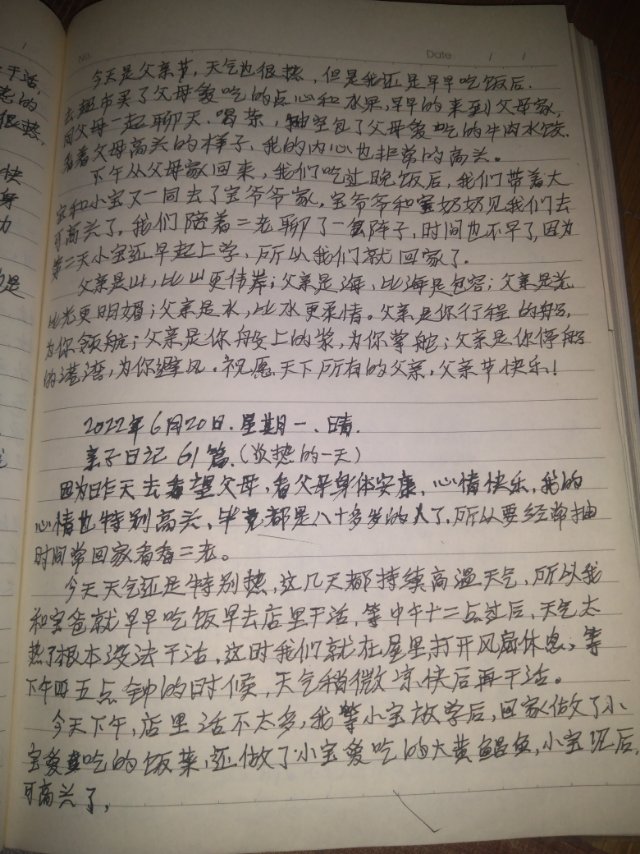 No.
Date / /
今天是父亲节,天气也很热,但是我还是早早吃饭后,
去超市买了父母爱吃的点心和水果,早早的来到父母家,
同父母一起聊天.喝茶,抽空包了父母爱吃的牛肉水饺.
看着父母高兴的样子,我的内心也非常的高兴。
下午从父母家回来,我们吃过晚饭后,我们带着大
宝和小宝又一同去了宝爷爷家,宝爷爷和宝奶奶见我们去
可高兴了,我们陪着二老聊了一阵子,时间也不早了,因为
第二天小宝还早起上学,所以我们就回家了。
父亲是山,比山更伟岸;父亲是海,比海是包容;父亲是光
比光更明媚;父亲是水,比水更柔情。父亲是你行程的船,
为你领航;父亲是你般上的桨,为你掌舵;父亲是你停船
的港湾,为你避风。祝愿天下所有的父亲,父亲节快乐!
2022年6月20日.星期一.晴.
亲子日记61篇.(炎热的一天)
因为昨天去看望父母,看父母身体安康,心情快乐,我的
心情也特别高兴,毕竟都是八十多岁的人了.所以要经常抽
时间常回家看看二老。
今天天气还是特别热,这几天都持续高温天气,所以我
和宝爸就早早吃饭早去店里干活,等中午十二点过后,天气太
热了根本没法干活,这时我们就在屋里打开风扇休息,等
下午四五点钟的时候,天气稍微凉快后再干活。
今天下午,店里活不太多,我等小宝放学后,回家做了小
宝爱吃的饭菜,还做了小宝爱吃的大黄鲳鱼,小宝吃后,
可高兴了,